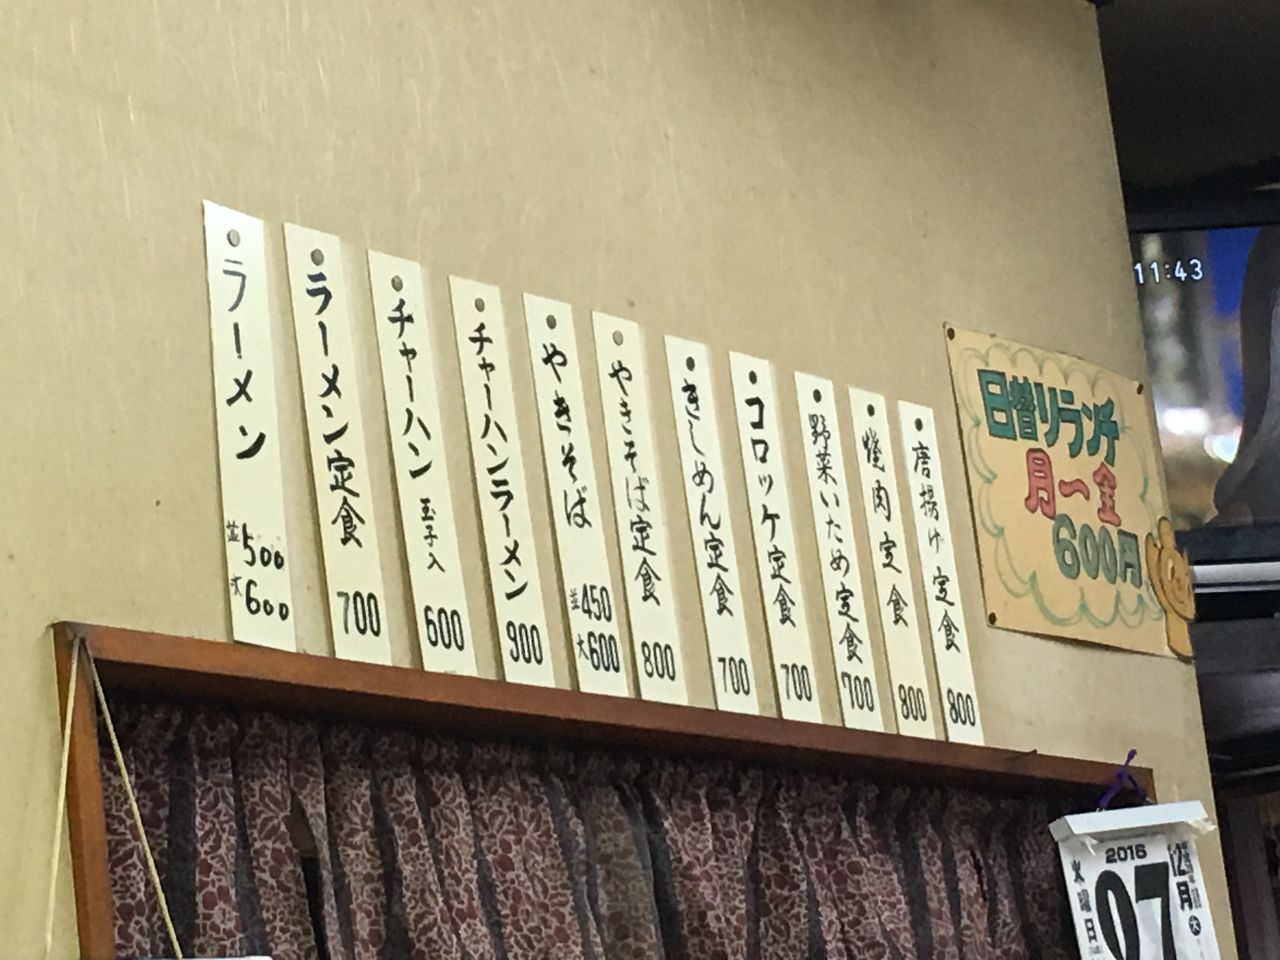 ラーメン 並500 大600
ラーメン定食 700
チャーハン 玉子入 600
チャーハンラーメン 900
やきそば 並450 大600
やきそば定食 800
きしめん定食 700
コロッケ定食 700
野菜いため定食 700
焼肉定食 800
唐揚げ定食 800
日替りランチ
月ー金
600円
11:43
2016
12月
水曜日
07
大